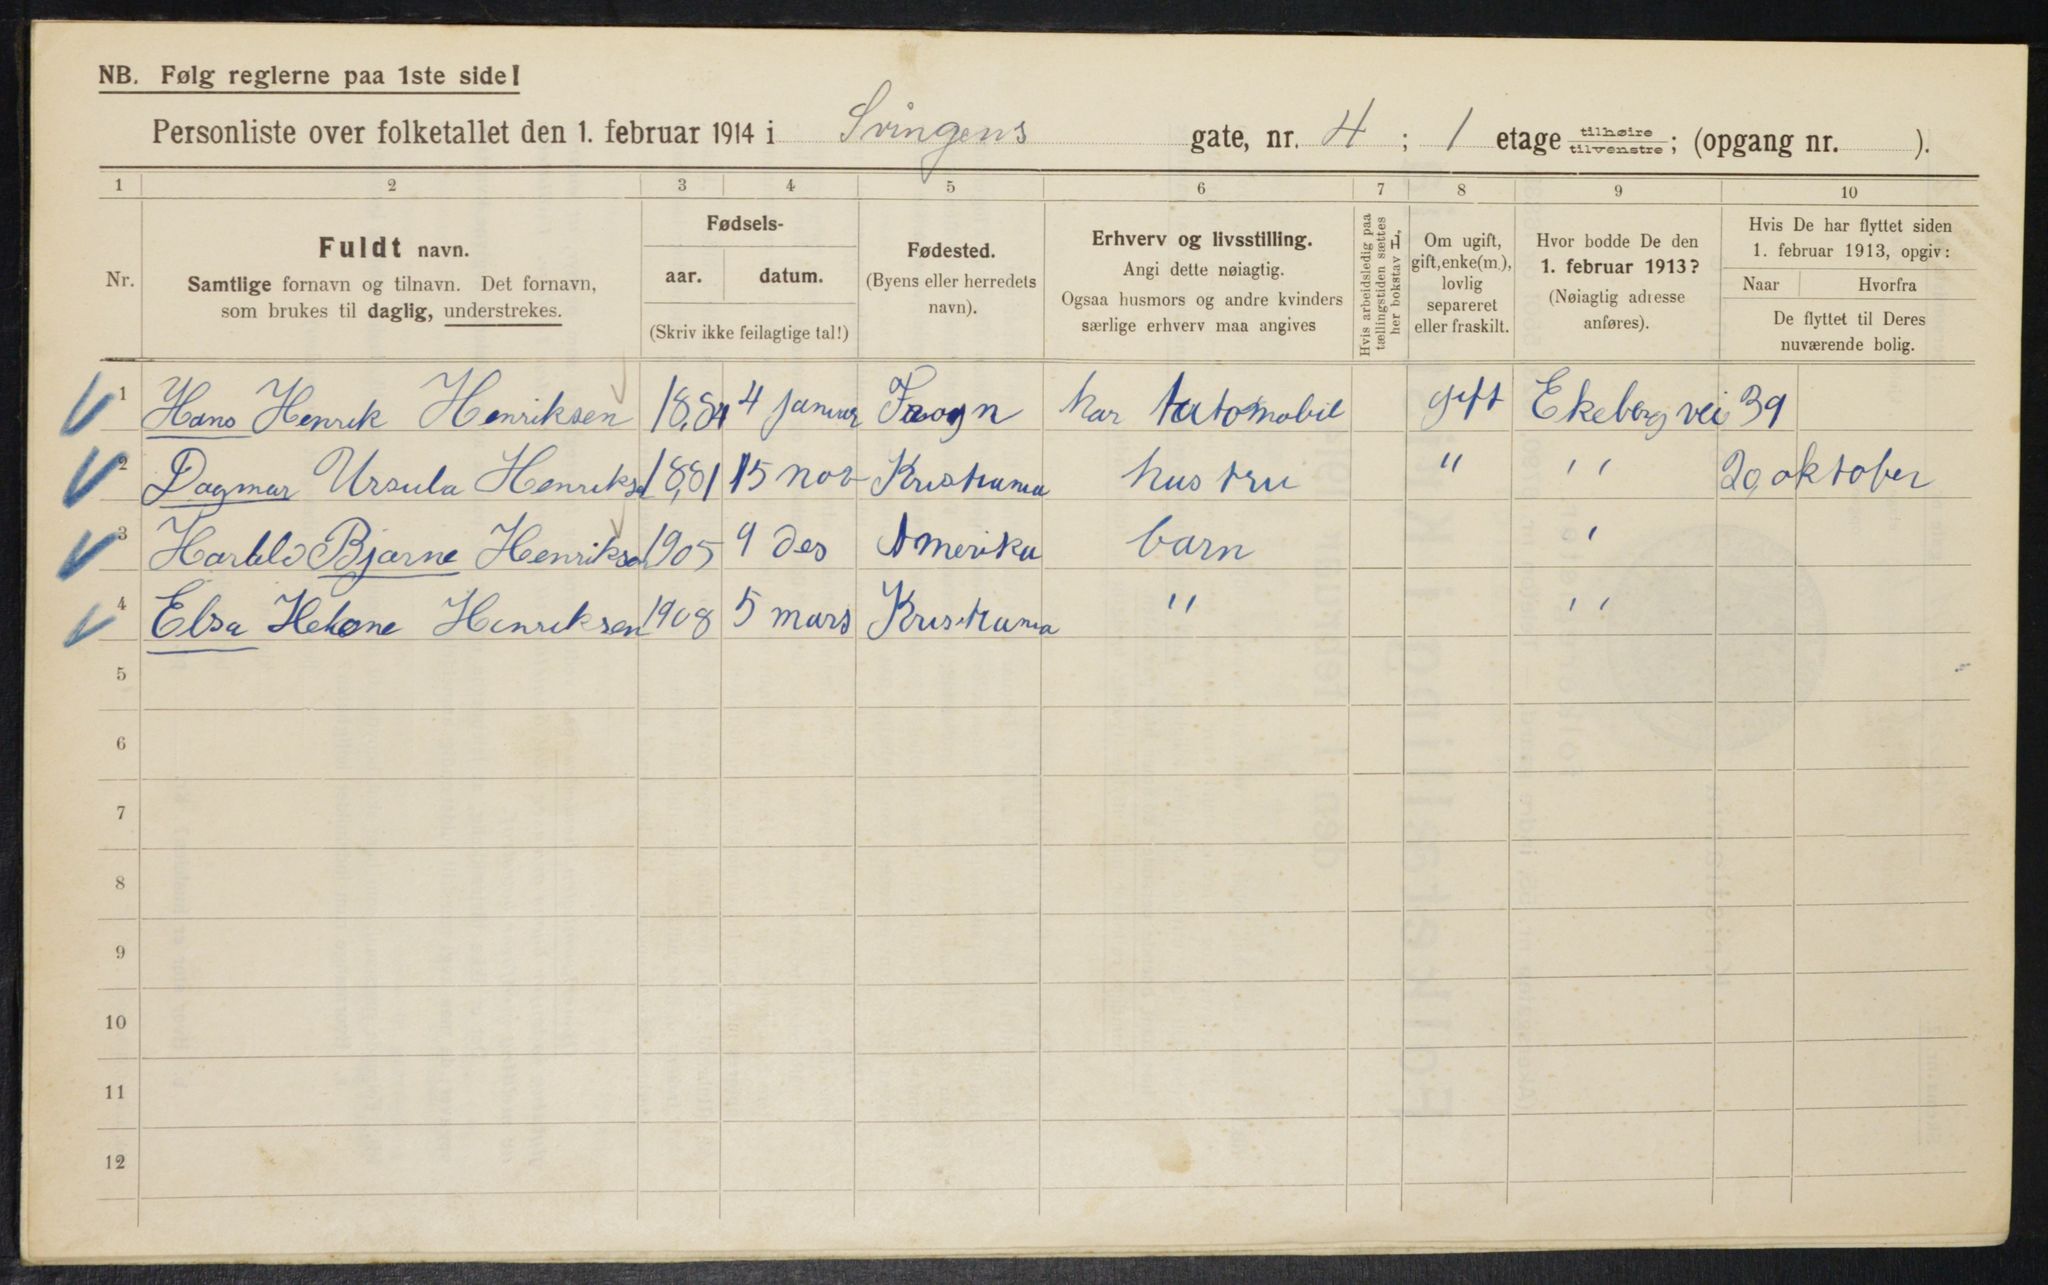 NB. Følg reglerne paa 1ste side!
Personliste over folketallet den 1. februar 1914 i Svingens gate, nr. 4 ; 1 etage tilhøire tilvenstre; (opgang nr. ).
1 2 3 4 5 6 7 8 9 10
Nr.
Fuldt navn.
Samtlige fornavn og tilnavn. Det fornavn,
som brukes til daglig, understrekes.
Fødsels-
aar. datum.
(Skriv ikke feilagtige tal!)
Fødested.
(Byens eller herredets
navn).
Erhverv og livsstilling.
Angi dette nøiagtig.
Ogsaa husmors og andre kvinders
særlige erhverv maa angives
Hvis arbeidsledig paa
tællingstiden sættes
her bokstav L.
Om ugift,
gift, enke(m.),
lovlig
separeret
eller fraskilt.
Hvor bodde De den
1. februar 1913?
(Nøiagtig adresse
anføres).
Hvis De har flyttet siden
1. februar 1913, opgiv:
Naar Hvorfra
De flyttet til Deres
nuværende bolig.
1 Hans Henrik Henriksen 1884 4 januar Frogn har Automobil gift Ekeberg vei 39
2 Dagmar Ursula Henrikse 1881 15 nov Kristiania hustru " " 20, oktober
3 Harald Bjarne Henrikse 1905 9 des Amerika barn "
4 Elsa Helene Henriksen 1908 5 mars Kristiania " "
5
6
7
8
9
10
11
12